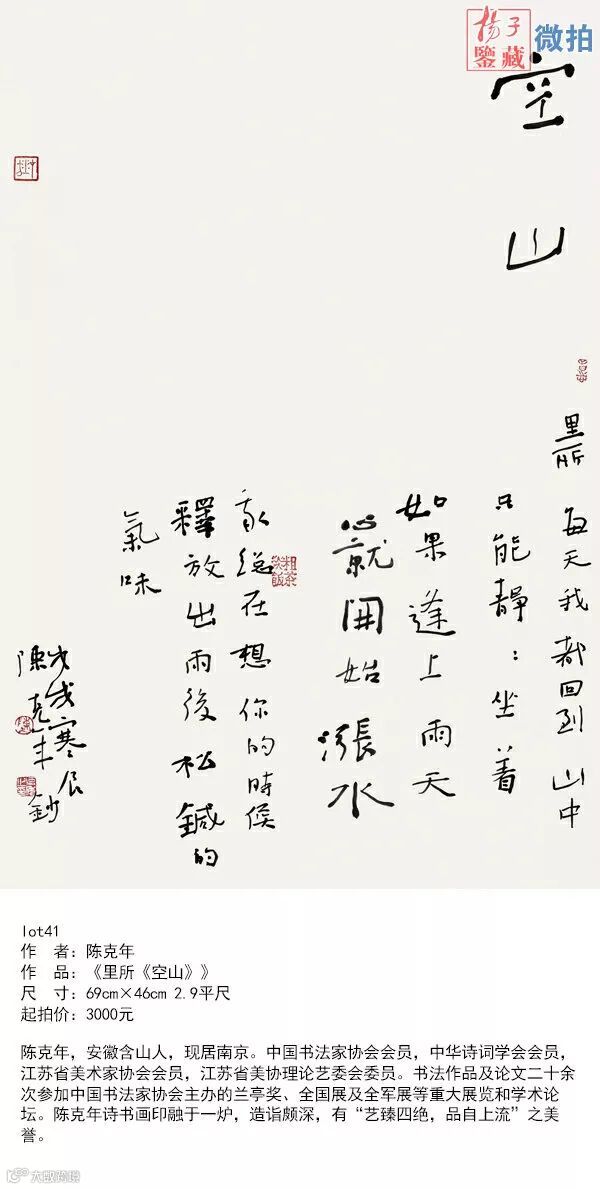 揚子
鑒藏
微拍
空山
里所
每天我都回到山中
只能靜：坐着
如果逢上雨天
心就開始漲水
我總在想你的時候
釋放出雨後松鍼的
氣味
戊戌寒辰
陳克年鈔
粗茶淡飯
lot41
作 者：陈克年
作 品：《里所《空山》》
尺 寸：69cm×46cm 2.9平尺
起拍价：3000元
陈克年，安徽含山人，现居南京。中国书法家协会会员，中华诗词学会会员，
江苏省美术家协会会员，江苏省美协理论艺委会委员。书法作品及论文二十余
次参加中国书法家协会主办的兰亭奖、全国展及全军展等重大展览和学术论
坛。陈克年诗书画印融于一炉，造诣颇深，有“艺臻四绝，品自上流”之美
誉。
大数跨境